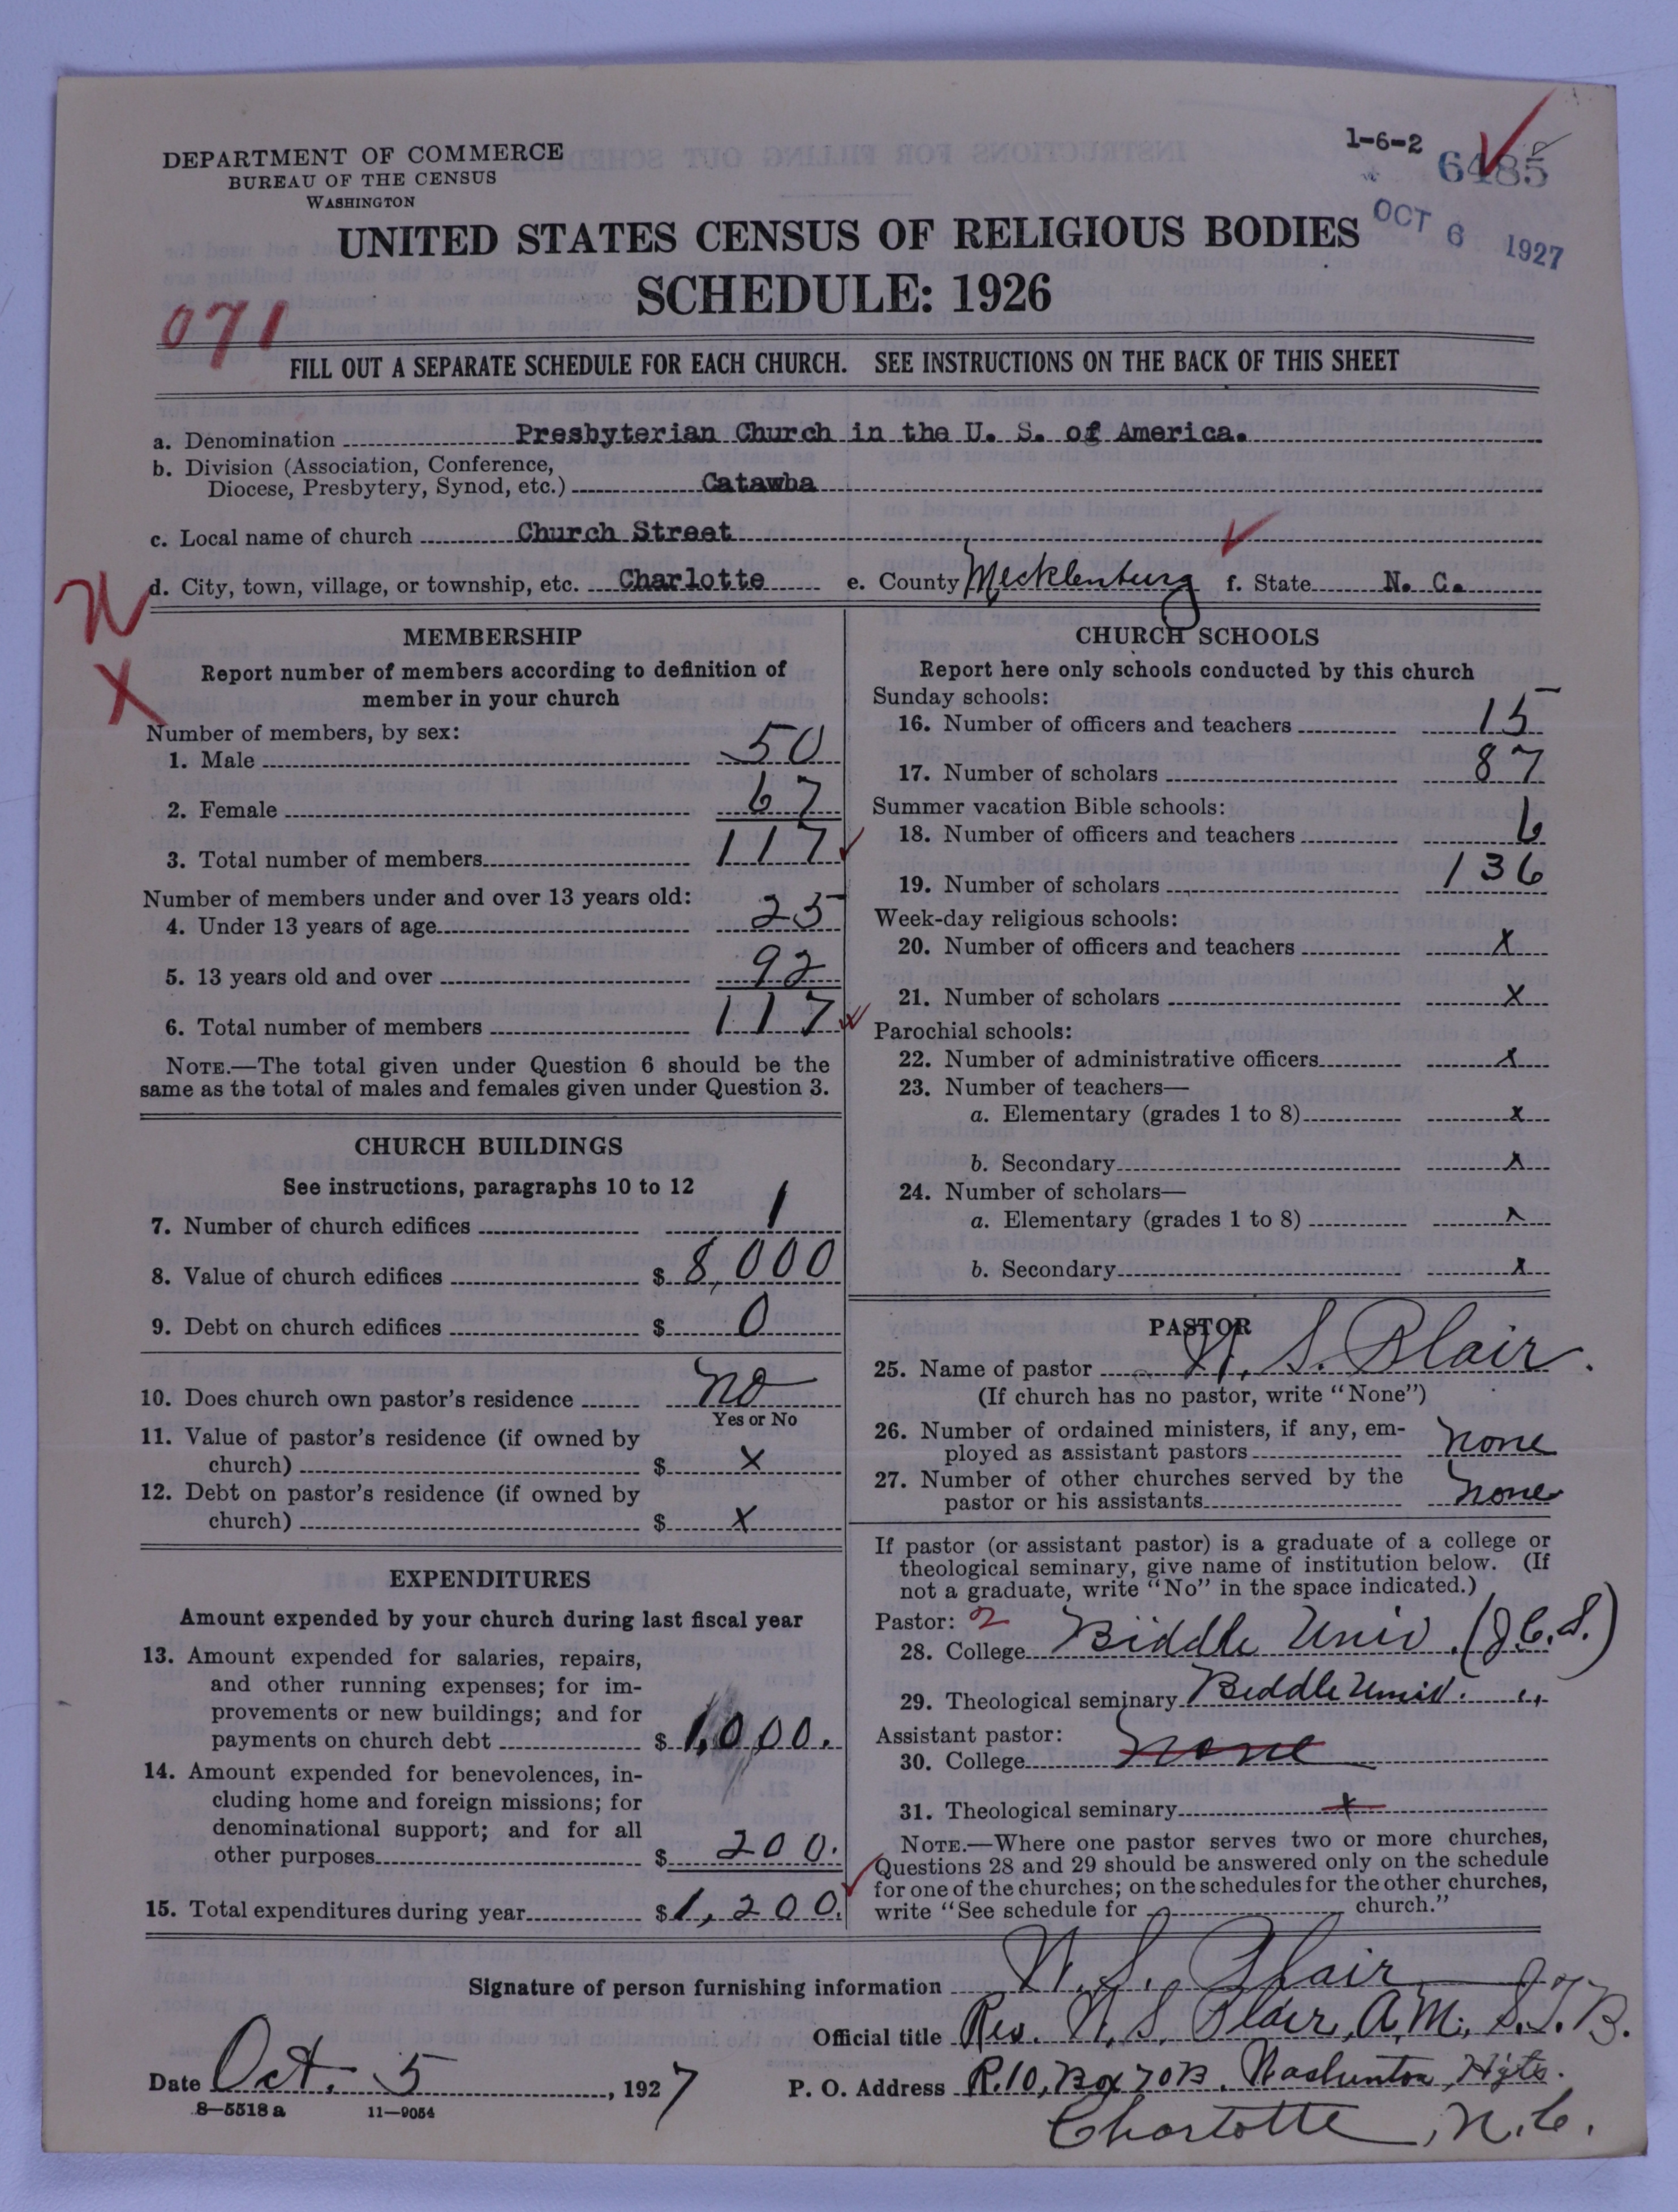 DEPARTMENT OF COMMERCE
BUREAU OF THE CENSUS
WASHINGTON
1-6-2
6485
OCT 6 1927
UNITED STATES CENSUS OF RELIGIOUS BODIES
SCHEDULE: 1926
071
FILL OUT A SEPARATE SCHEDULE FOR EACH CHURCH. SEE INSTRUCTIONS ON THE BACK OF THIS SHEET
a. Denomination Presbyterian Church in the U. S. of America.
b. Division (Association, Conference,
Diocese, Presbytery, Synod, etc.) Catawba
c. Local name of church Church Street
d. City, town, village, or township, etc. Charlotte e. County Mecklenburg f. State N. C.
N
X
MEMBERSHIP
Report number of members according to definition of
member in your church
Number of members, by sex:
1. Male 50
2. Female 67
3. Total number of members 117
Number of members under and over 13 years old:
4. Under 13 years of age 25
5. 13 years old and over 92
6. Total number of members 117
NOTE.—The total given under Question 6 should be the
same as the total of males and females given under Question 3.
CHURCH BUILDINGS
See instructions, paragraphs 10 to 12
7. Number of church edifices 1
8. Value of church edifices $ 8,000
9. Debt on church edifices $ 0
10. Does church own pastor's residence no
Yes or No
11. Value of pastor's residence (if owned by
church) $ x
12. Debt on pastor's residence (if owned by
church) $ x
EXPENDITURES
Amount expended by your church during last fiscal year
13. Amount expended for salaries, repairs,
and other running expenses; for im-
provements or new buildings; and for
payments on church debt $ 1,000.
14. Amount expended for benevolences, in-
cluding home and foreign missions; for
denominational support; and for all
other purposes $ 200.
15. Total expenditures during year $ 1,200.
CHURCH SCHOOLS
Report here only schools conducted by this church
Sunday schools:
16. Number of officers and teachers 15
17. Number of scholars 87
Summer vacation Bible schools:
18. Number of officers and teachers 6
19. Number of scholars 136
Week-day religious schools:
20. Number of officers and teachers x
21. Number of scholars x
Parochial schools:
22. Number of administrative officers x
23. Number of teachers—
a. Elementary (grades 1 to 8) x
b. Secondary x
24. Number of scholars—
a. Elementary (grades 1 to 8) x
b. Secondary x
PASTOR
25. Name of pastor W. S. Blair.
(If church has no pastor, write "None")
26. Number of ordained ministers, if any, em-
ployed as assistant pastors none
27. Number of other churches served by the
pastor or his assistants none
If pastor (or assistant pastor) is a graduate of a college or
theological seminary, give name of institution below. (If
not a graduate, write "No" in the space indicated.)
Pastor: 2
28. College Biddle Univ. (J.C.S.)
29. Theological seminary Biddle Univ. "
Assistant pastor:
30. College none
31. Theological seminary x
NOTE.—Where one pastor serves two or more churches,
Questions 28 and 29 should be answered only on the schedule
for one of the churches; on the schedules for the other churches,
write "See schedule for church."
Signature of person furnishing information W. S. Blair
Official title Rev. W. S. Blair, A.M., S.T.B.
Date Oct. 5, 1927
P. O. Address R.10, Box 70B, Washinton Hgts.
Charlotte, N.C.
8-5518 a 11-9054